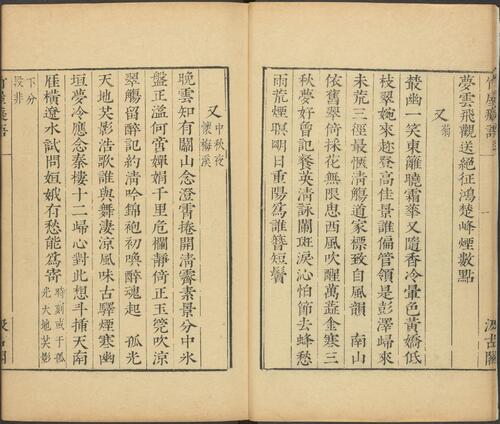 夢雲飛觀送絕征鴻楚峰煙數點
又菊
叢幽一笑東籬曉霜華又隨香冷暈色黃嬌低
枝翠婉來趂登高佳景誰偏管領是彭澤歸來
未荒三徑最愜清觴道家標致自風韻 南山
依舊翠倚採花無限思西風吹醒萬蘂金寒三
秋夢好曾記餐英清詠闌斑淚沁怕節去蜂愁
雨荒煙暝明日重陽爲誰簪短鬢
汲古閣
又中秋夜
懷梅溪
晚雲知有關山念澄霄捲開清霽素景分中氷
盤正溢何啻嬋娟千里危欄靜倚正玉筦吹涼
翠觴留醉記約清吟錦袍初喚醉魂起 孤光
天地共影浩歌誰與舞淒涼風味古驛煙寒幽
垣夢冷應念秦樓十二歸心對此想斗插天南
鴈橫遼水試問姮娥有愁能爲寄時刻或于孤
光天地共影
下分
段非
竹屋癡語
汲古閣